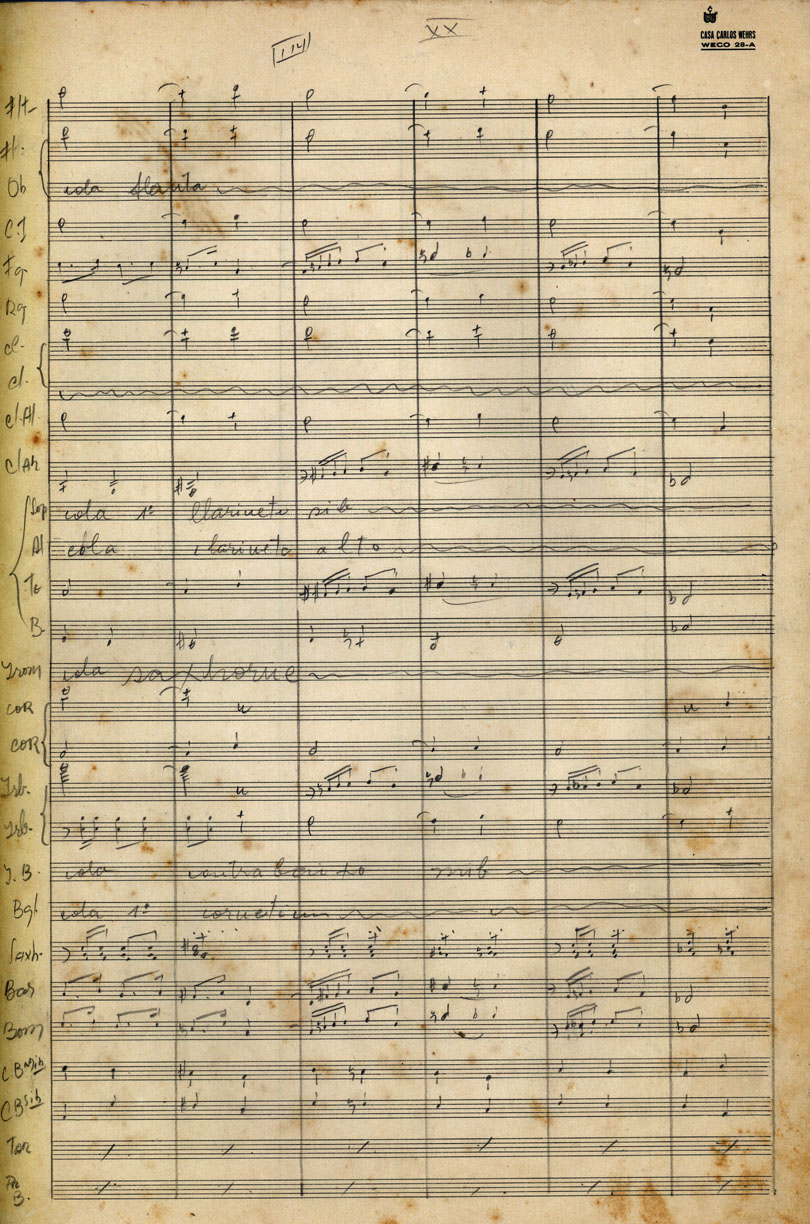 XX
114
CASA CARLOS WEHRS
WECO 28-A
Fl.
Ob cola flauta
Fg
Rq
cl.
cl.
cl Al
Sop cola 1º Clarineta sib
Al cola clarineta alto
Te
B.
Trom cola saxhorne
COR
COR
Trb.
Trb.
T.B. cola contrabaixo mib
Bgl cola 1º cornetim
Saxh.
Bar
Bom
C.B mib
C B sib
Tar
B.